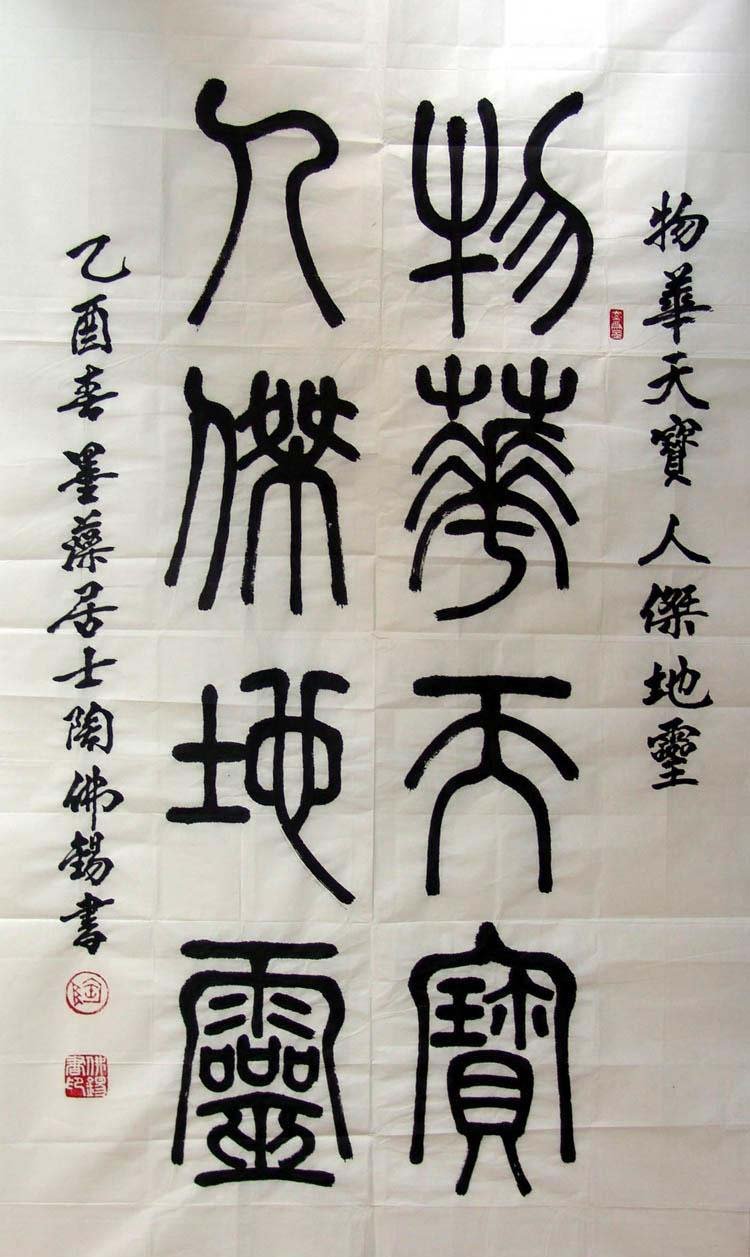 物華天寶人傑地靈
物華天寶
人傑地靈
乙酉春墨藻居士陶佛錫書
陶
佛錫書印